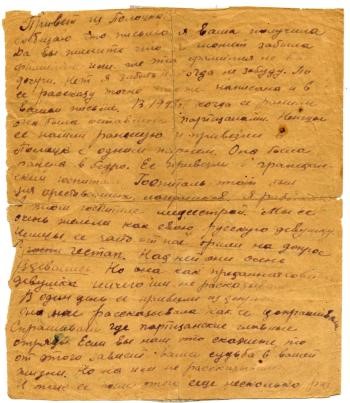 Привет из Полоцка
сообщаю что письмо я Ваше получила
Да вы пишете что может забыла
фамилию или же эта фамилия не
другая. Нет я забыла и не забуду. По
се рассказу точно написана и в
вашем письме. В 1943 г. когда ее ранили
она была оставлена партизанами. Немцы
ее нашли раненую и привезли
Полоцк с одним парнем. Она была
ранена в бедро. Ее привезли граждан-
ский госпиталь. Госпиталь этот был
для арестованных, Я
в этом госпитале медсестрой. Мы ее
очень жалели как свою русскую девушку
Немцы ее часто от нас брали на допрос
гестап. Над ней они очень
издевались. Но она как преданная
девушка ничего им не рассказала
В один день ее привезли из допроса
Она нам рассказывала как ее допрашивали
Спрашивали где партизанские
отряды. Если вы нам это скажите то
от этого зависит ваша судьба в вашей
жизни. Но она им не рассказала.
И так ее после этого еще несколько раз